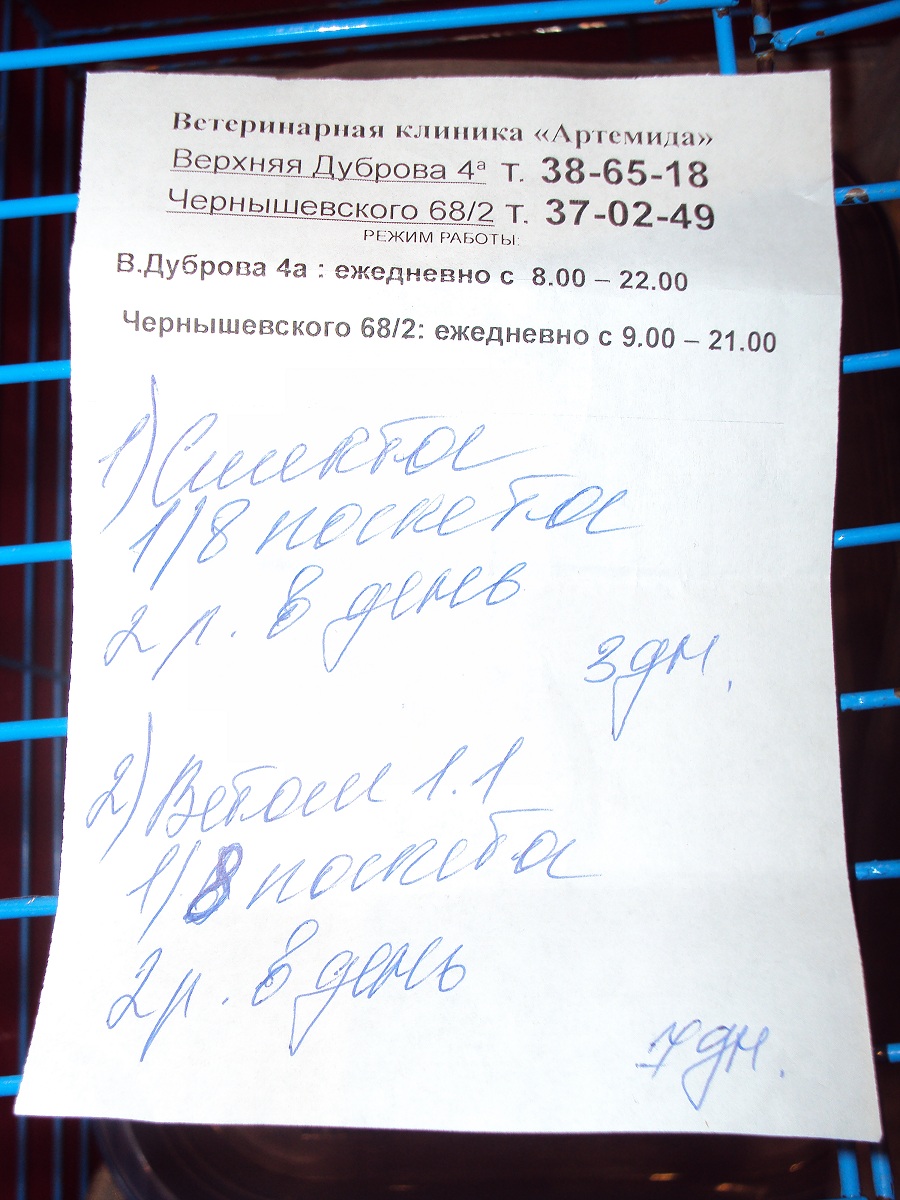 Ветеринарная клиника «Артемида»
Верхняя Дуброва 4ª т. 38-65-18
Чернышевского 68/2 т. 37-02-49
РЕЖИМ РАБОТЫ:
В.Дуброва 4а : ежедневно с 8.00 – 22.00
Чернышевского 68/2: ежедневно с 9.00 – 21.00
1) Смекта
1/8 пакета
2 р. в день
3 дн.
2) Ветом 1.1
1/8 пакета
2 р. в день
7 дн.